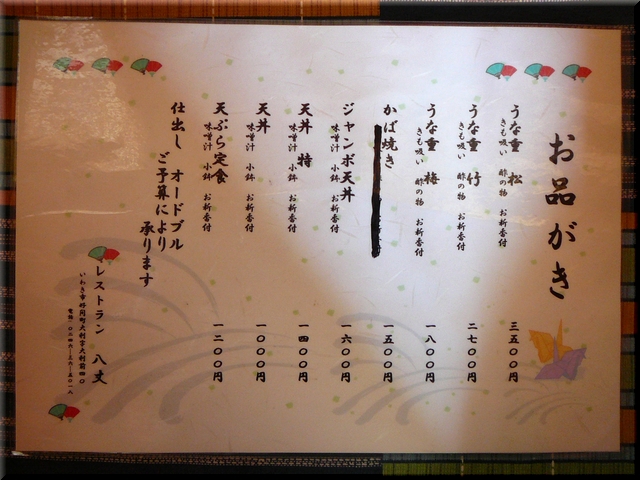 お品がき
うな重 松
きも吸い 酢の物 お新香付
三五〇〇円
うな重 竹
きも吸い 酢の物 お新香付
二七〇〇円
うな重 梅
きも吸い 酢の物 お新香付
一八〇〇円
かば焼き
一五〇〇円
ジャンボ天丼
味噌汁 小鉢 お新香付
一六〇〇円
天丼 特
味噌汁 小鉢 お新香付
一四〇〇円
天丼
味噌汁 小鉢 お新香付
一〇〇〇円
天ぷら定食
味噌汁 小鉢 お新香付
一二〇〇円
仕出し オードブル
ご予算により
承ります
レストラン 八丈